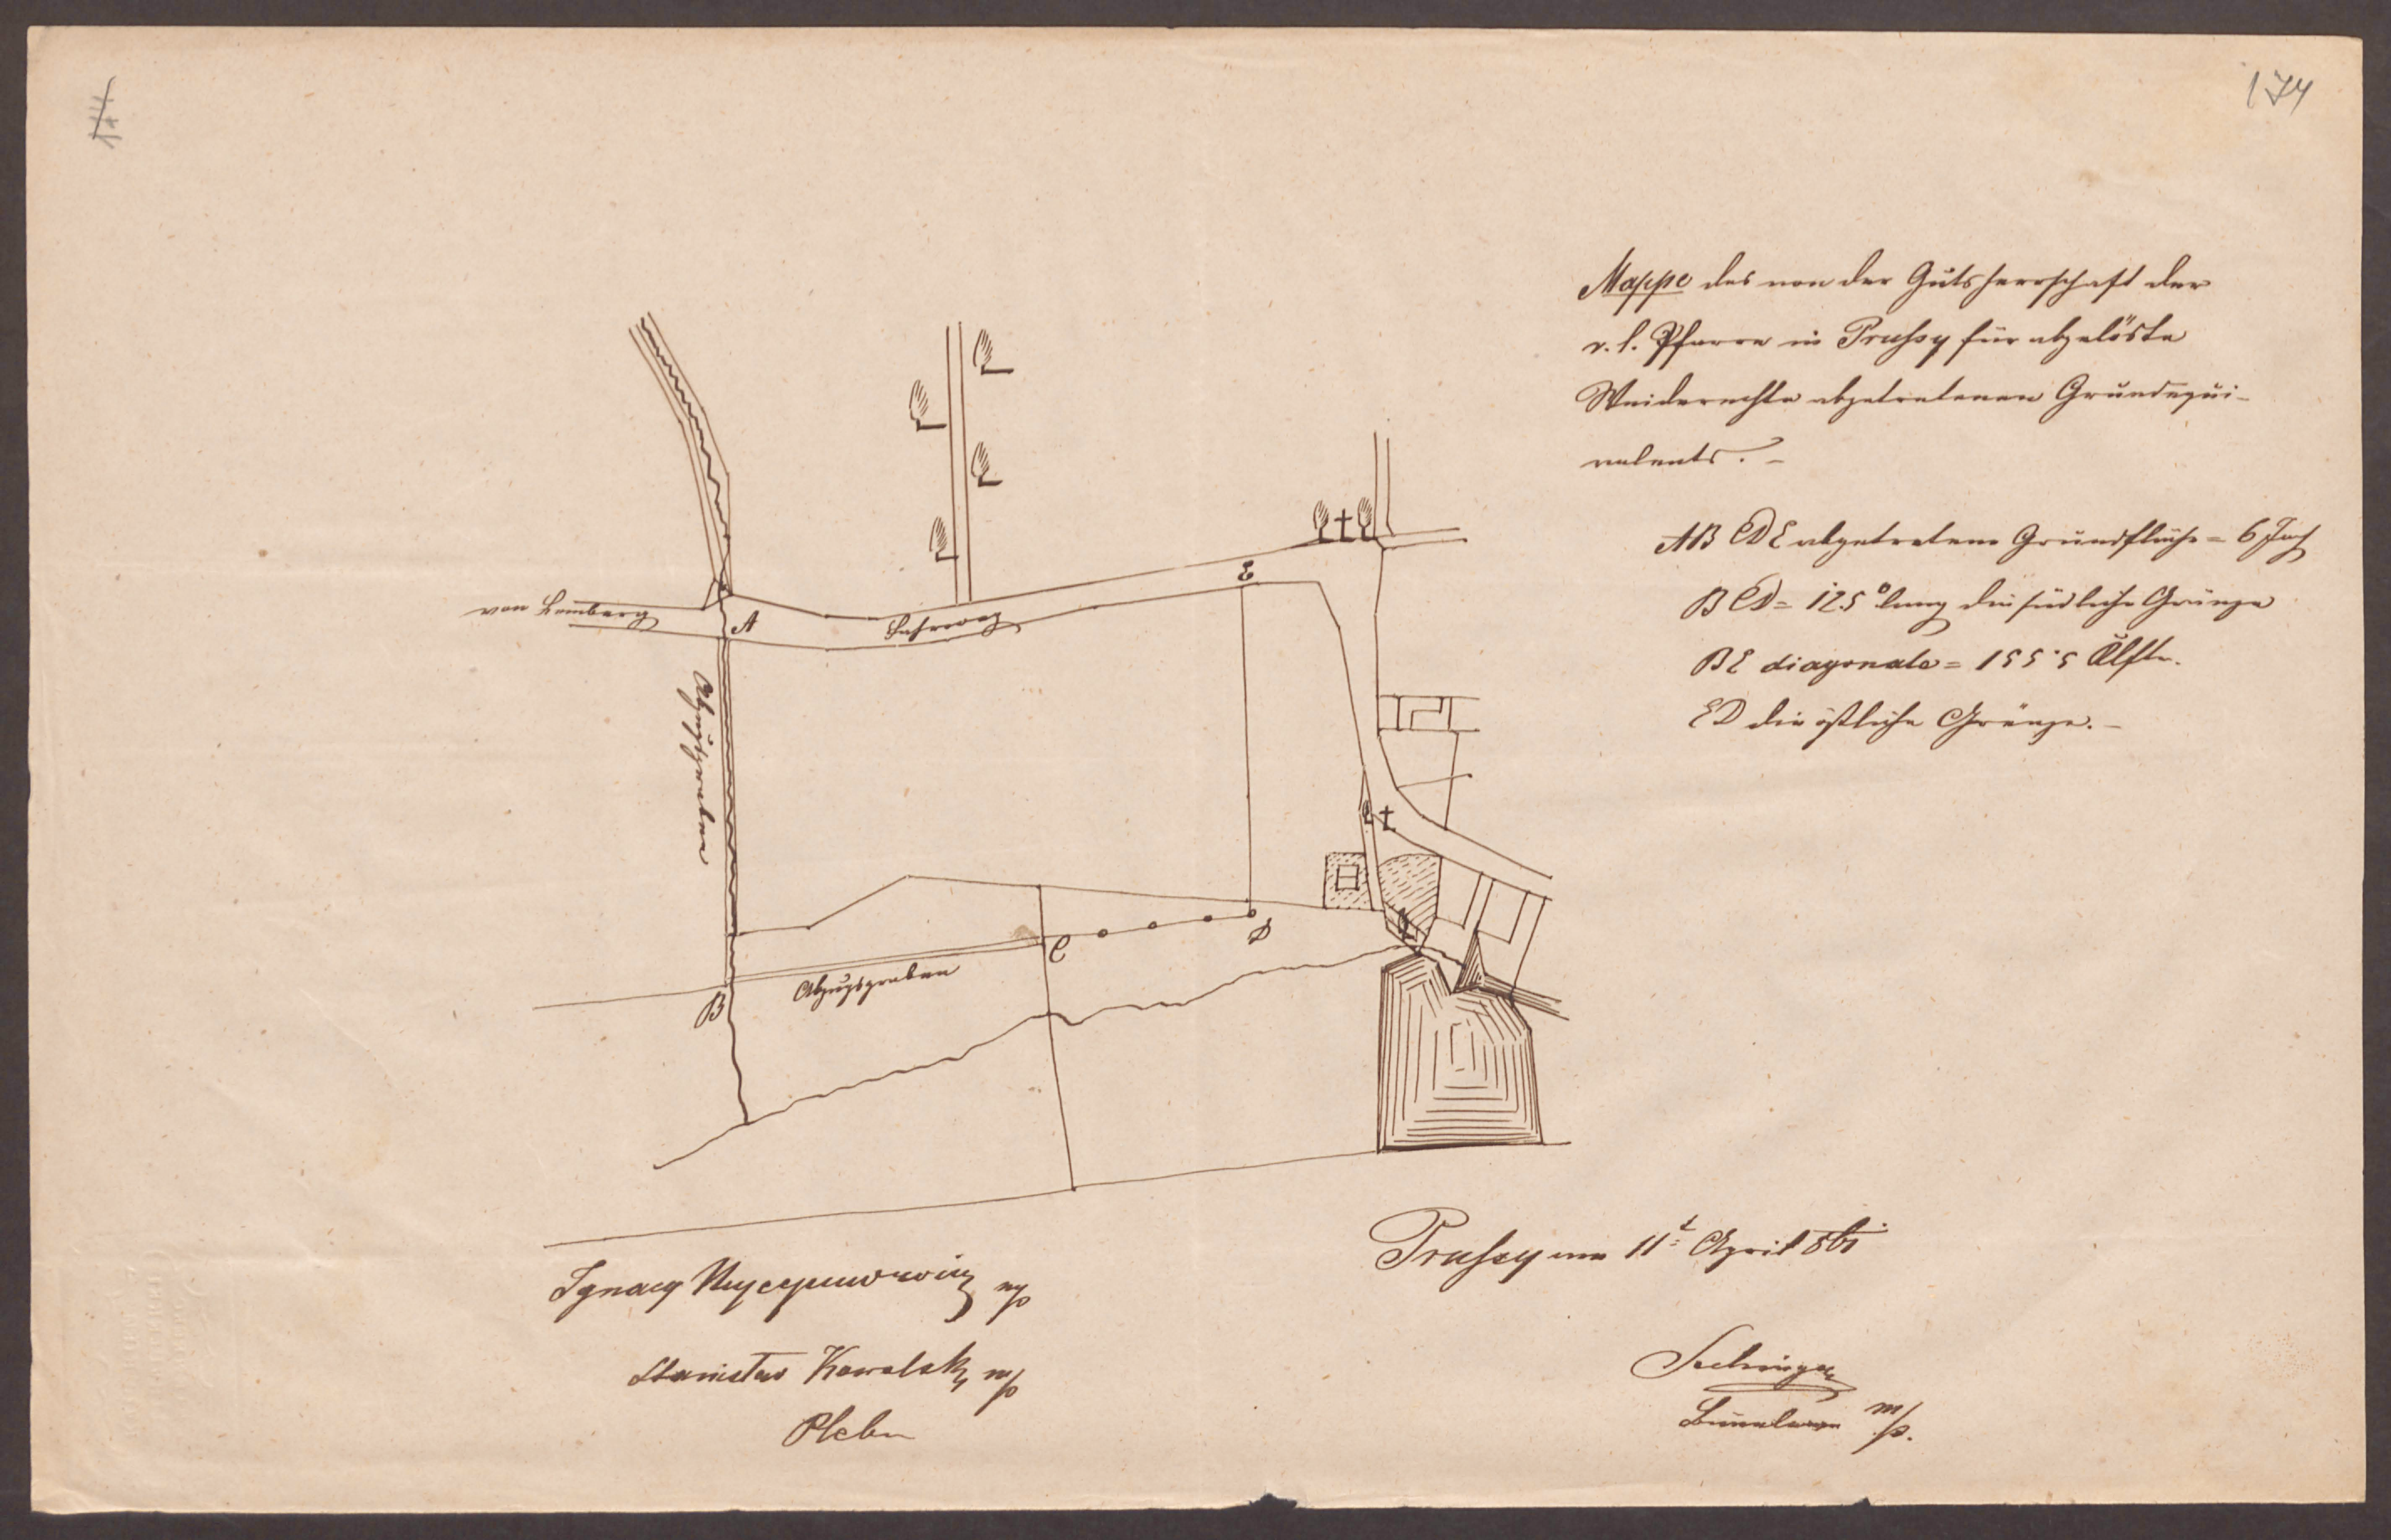 174
Mappe des von der Gutsherrschaft der
r. l. Pfarre in Prussy für abgelöste
Weiderechte abgetretenen Grundequi-
valents. –
AB CDE abgetretene Grundfläche = 6 Joch
BCD = 125° lang die südliche Gränze
BE diagonale = 155·5 Klftr.
ED die östliche Gränze. –
von Lemberg
A
Fahrweg
E
Abzugsgraben
C
D
B
Abzugsgraben
Prussy am 11t April 861
Ignacy mp
Stanisław Kowalski mp
Pleban
mp.